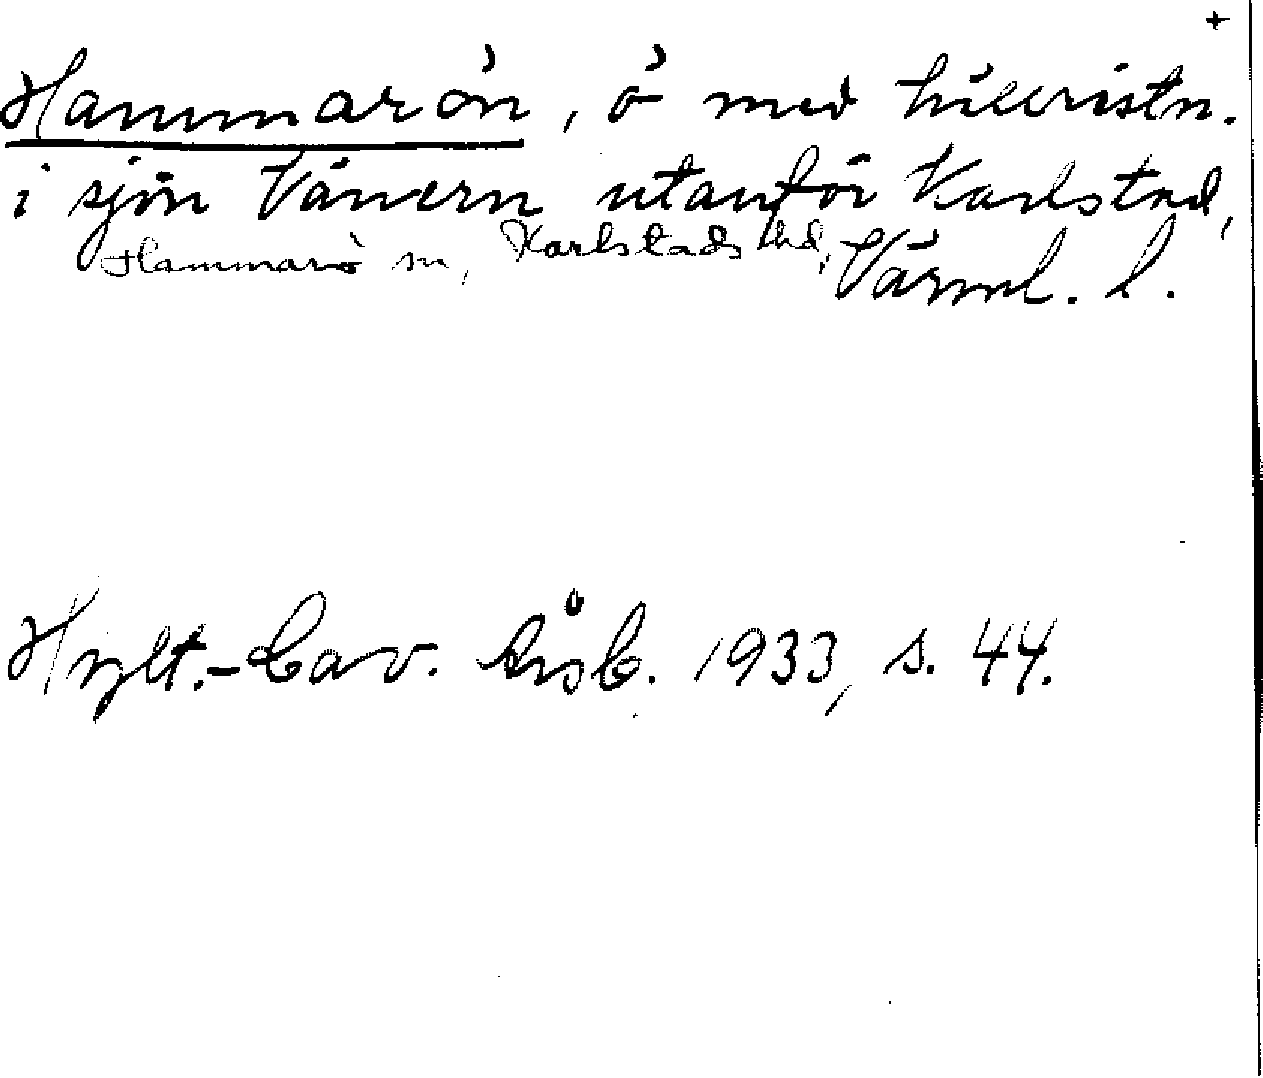 +
Hammarön, ö med hällristn.
i sjön Vänern utanför Karlstad,
Hammarö sn, Karlstads hd, Värml. l.
Hylt.-Cav. Årsb. 1933, s. 44.